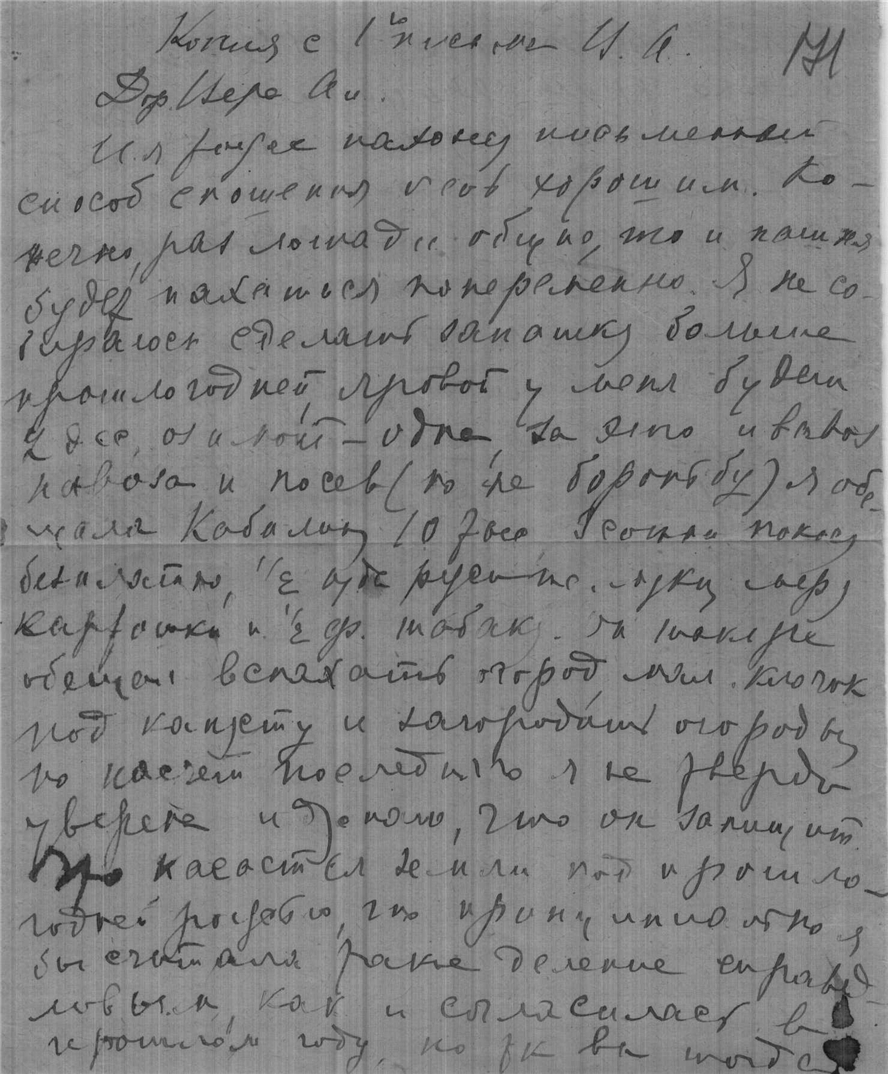 Копия с 1го письма И. А. 171
Дор. Вера Ан.
И я также нахожу письменный
способ сношения очень хорошим. Ко-
нечно, раз лошади общие, то и пашня
будет пахаться попеременно. Я не со-
бираюсь сделать запашку больше
прошлогодней, яровой у меня будет
2 дес, озимой – одна, за это и вывоз
навоза и посев (но не бороньбу) я обе-
щала 10 покосу
бесплатно, 1/2 муки, меру
картошки и 1/2 ф. табаку. Он также
обещал вспахать огород, мал. клочок
под капусту и загородить огороды,
но насчет последнего я не твердо
уверена и думаю, что он запищит.
Что касается земли под прошло-
годней рожью, то принципиально я
бы считала такое деление справед-
ливым, как и согласилась в
прошлом году, но тк вы тогда